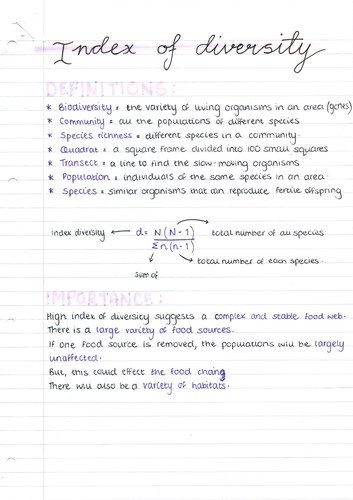 Index of diversity
DEFINITIONS:
* Biodiversity = the variety of living organisms in an area (genes)
* Community = all the populations of different species
* Species richness = different species in a community.
* Quadrat = a square frame divided into 100 small squares
* Transect = a line to find the slow-moving organisms
* Population = individuals of the same species in an area.
* Species = similar organisms that can reproduce fertile offspring
index diversity ← d = N(N-1) / Σn(n-1) → total number of all species
→ total number of each species.
sum of
IMPORTANCE:
High index of diversity suggests a complex and stable food web.
There is a large variety of food sources.
If one food source is removed, the populations will be largely
unaffected.
But, this could effect the food chang
There will also be a variety of habitats.